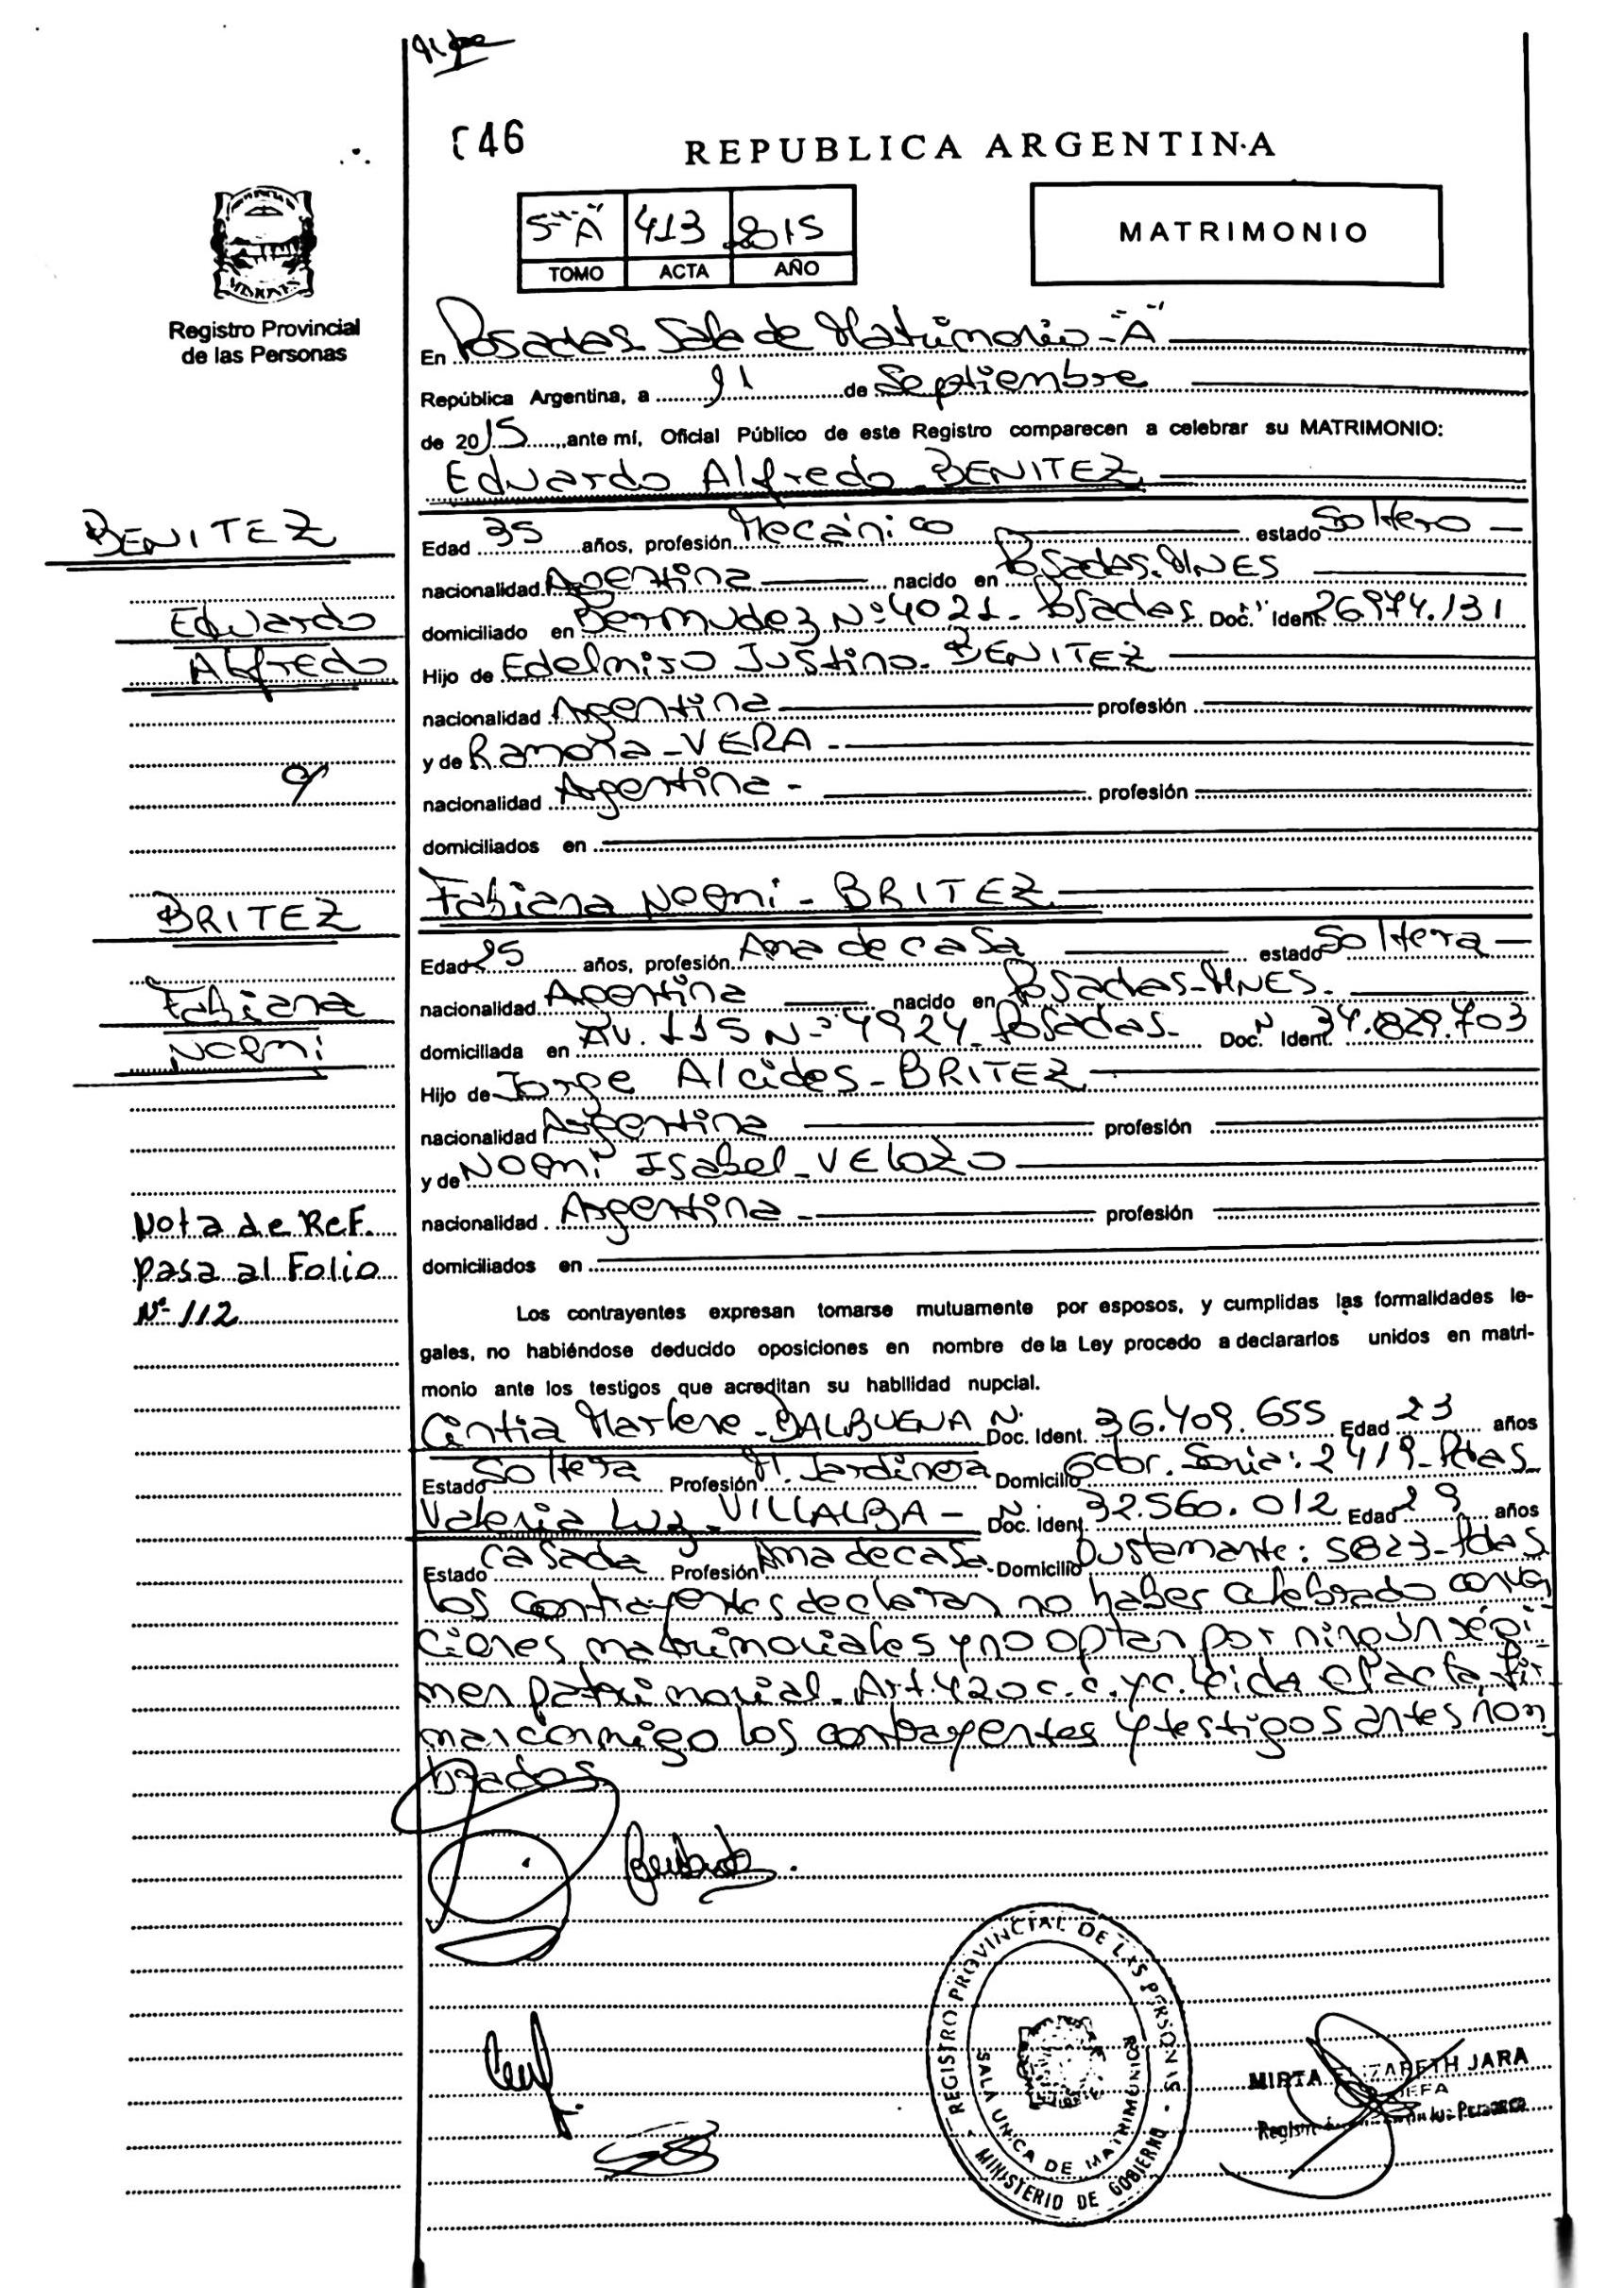 46
REPUBLICA ARGENTINA
5º "A" 413 2015
TOMO ACTA AÑO
MATRIMONIO
Registro Provincial
de las Personas
En Posadas Sala de Matrimonio - "A"
República Argentina, a 21 de Septiembre
de 2015, ante mí, Oficial Público de este Registro comparecen a celebrar su MATRIMONIO:
Eduardo Alfredo BENITEZ
BENITEZ
Eduardo
Alfredo
Edad 35 años, profesión Mecánico estado Soltero -
nacionalidad Argentina nacido en Posadas. MNES
domiciliado en Bermudez Nº 4021 - Posadas. Doc. Ident. 26974.131
Hijo de Edelmiro Justino - BENITEZ
nacionalidad Argentina profesión
y de Ramona - VERA -
nacionalidad Argentina - profesión
domiciliados en
Fabiana Noemi - BRITEZ
BRITEZ
Fabiana
Noemi
Edad 25 años, profesión Ama de casa estado Soltera -
nacionalidad Argentina nacido en Posadas - MNES.
domiciliada en AV. 115 Nº 4924 Posadas - Doc. Ident. 34.829.703
Hijo de Jorge Alcides - BRITEZ
nacionalidad Argentina profesión
y de Noemi Isabel - VELOZO
nacionalidad Argentina - profesión
domiciliados en
Nota de Ref.
pasa al Folio
Nº 112
Los contrayentes expresan tomarse mutuamente por esposos, y cumplidas las formalidades le-
gales, no habiéndose deducido oposiciones en nombre de la Ley procedo a declararlos unidos en matri-
monio ante los testigos que acreditan su habilidad nupcial.
Cintia Marlene - BALBUENA N. Doc. Ident. 36.409.655 Edad 23 años
Estado Soltera Profesión M. Jardinera Domicilio Gdor. Soria: 2419 - Pdas
Valeria Luz - VILLALBA - N. Doc. Ident. 32.560.012 Edad 29 años
Estado Casada Profesión Ama de casa - Domicilio Bustamante: 5823 - Pdas
los contrayentes declaran no haber celebrado conven
ciones matrimoniales y no optan por ningún régi
men patrimonial. Art. 420 c.c. y c. leida el acta, fir
man conmigo los contrayentes y testigos antes nom
brados.
REGISTRO PROVINCIAL DE LAS PERSONAS
SALA UNICA DE MATRIMONIOS
MINISTERIO DE GOBIERNO
MIRTA ELIZABETH JARA
JEFA